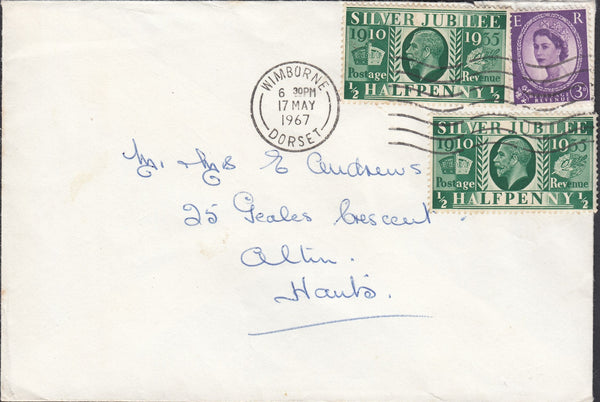 SILVER JUBILEE
1910 1935
Postage Revenue
½ HALFPENNY ½
E R
3D
REVENUE
WIMBORNE
6 30PM
17 MAY
1967
DORSET
SILVER JUBILEE
1910 1935
Postage Revenue
½ HALFPENNY ½
Mr. & Mrs E Andrews
25 Geales Crescent
Altin.
Hants.